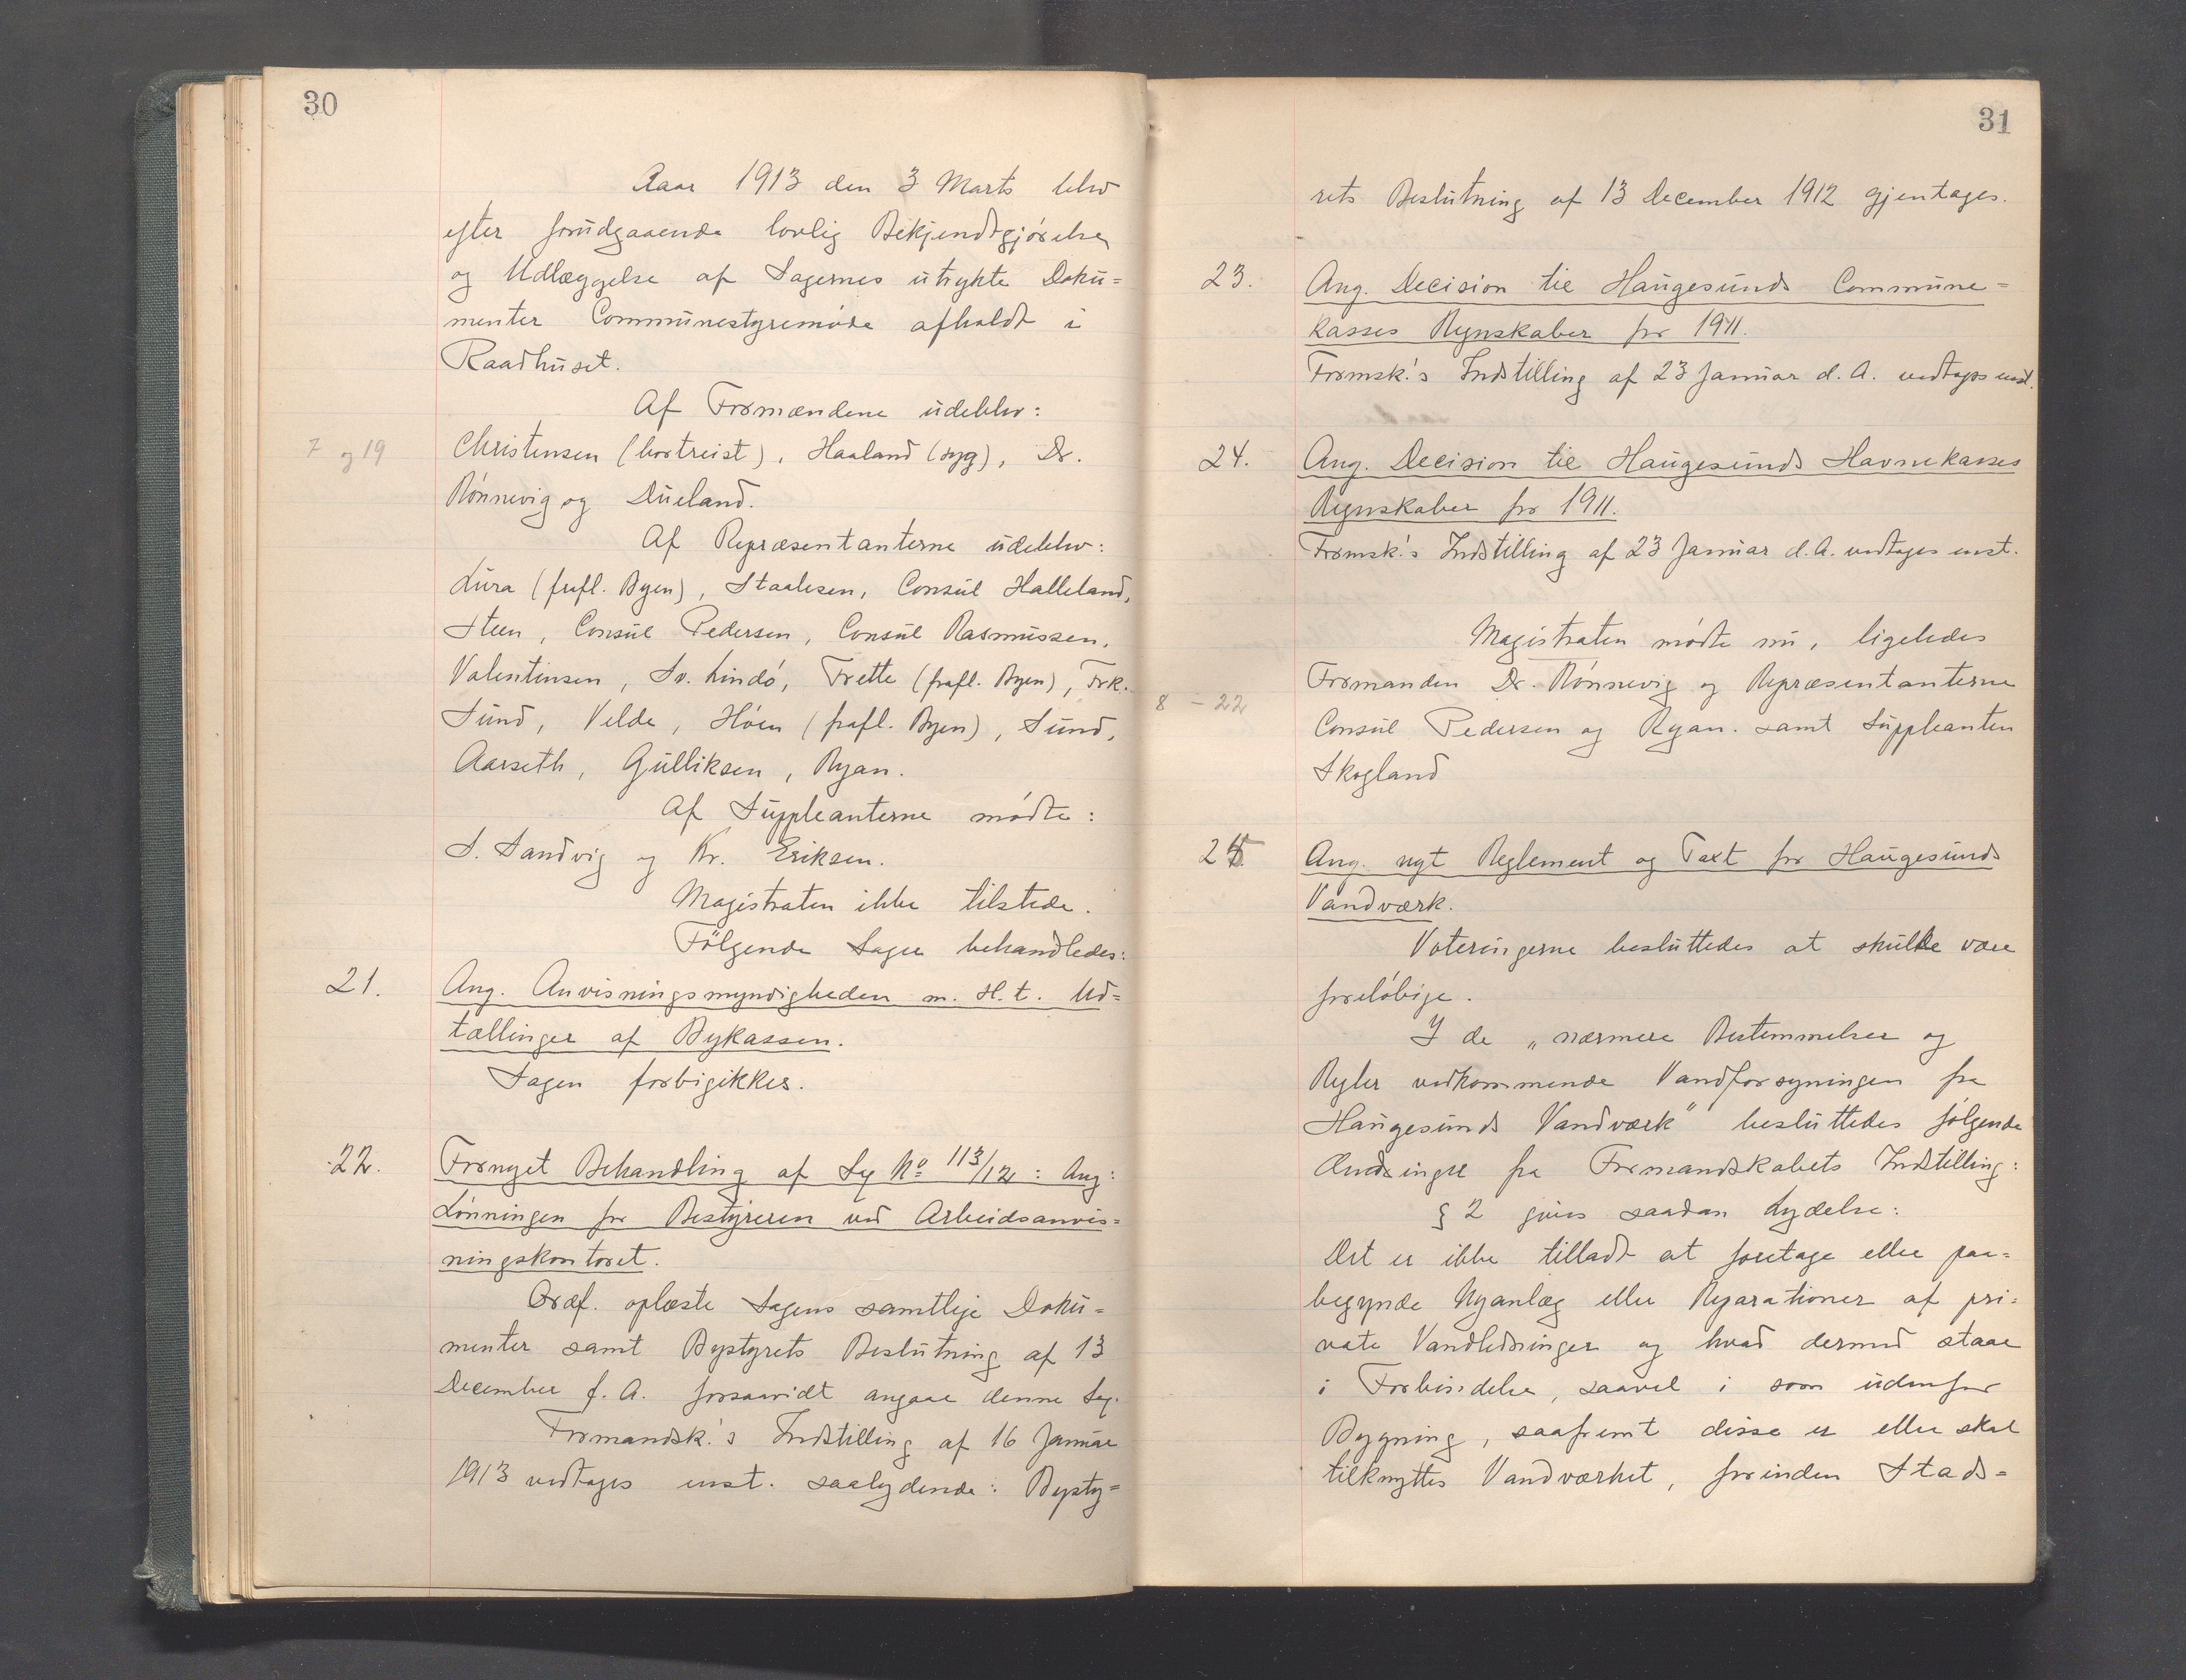 30
Aar 1913 den 3 Marts blev
efter forudgaaende lovlig Bekjendtgjørelse
og Udlæggelse af Sagernes utrykte Doku=
menter Communestyremøde afholdt i
Raadhuset.
Af Formændene udeblev:
7 og 19
Christensen (bortreist), Haaland (syg), Dr.
Rønnevig og Dueland.
Af Repræsentanterne udeblev:
Lura (frafl. Byen), Staalesen, Consul Halleland,
Steen, Consul Pedersen, Consul Rasmussen,
Valentinsen, Sv. Lindø, Frette (frafl. Byen), Frk.
Sund, Velde, Høen (frafl. Byen), Sund,
Aarseth, Gulliksen, Ryan.
Af Suppleanterne mødte:
S. Sandvig og Kr. Eriksen.
Magistraten ikke tilstede.
Følgende Sager behandledes:
21. Ang. Anvisningsmyndigheden m. H. t. Ud=
tællinger af Bykassen.
Sagen forbigikkes.
22. Fornyet Behandling af Sag No 113/12: Ang:
Lønningen for Bestyreren ved Arbeidsanvis=
ningskontoret.
Ordf. oplæste Sagens samtlige Doku=
menter samt Bystyrets Beslutning af 13
December f. A. forsaavidt angaar denne Sag.
Formandsk.'s Indstilling af 16 Januar
1913 vedtages enst. saalydende: Bysty=
31
rets Beslutning af 13 December 1912 gjentages.
23. Ang. Decision til Haugesunds Commune=
kasses Regnskaber for 1911.
Formsk.'s Indstilling af 23 Januar d. A. vedtages enst.
24. Ang. Decision til Haugesunds Havnekasses
Regnskaber for 1911.
Formsk.'s Indstilling af 23 Januar d. A. vedtages enst.
Magistraten mødte nu, ligeledes
8 - 22
Formanden Dr. Rønnevig og Repræsentanterne
Consul Pedersen og Ryan. samt Suppleanten
Skogland
25 Ang. nyt Reglement og Taxt for Haugesunds
Vandværk.
Voteringerne besluttedes at skulle være
foreløbige.
I de „nærmere Bestemmelser og
Regler vedkommende Vandforsyningen fra
Haugesunds Vandværk" besluttedes følgende
Ændringer fra Formandskabets Indstilling:
§ 2 gives saadan Lydelse:
Det er ikke tilladt at foretage eller paa=
begynde Nyanlæg eller Reparationer af pri=
vate Vandledninger og hvad dermed staar
i Forbindelse, saavel i som udenfor
Bygning, saafremt disse er eller skal
tilknyttes Vandværket, forinden Stads=